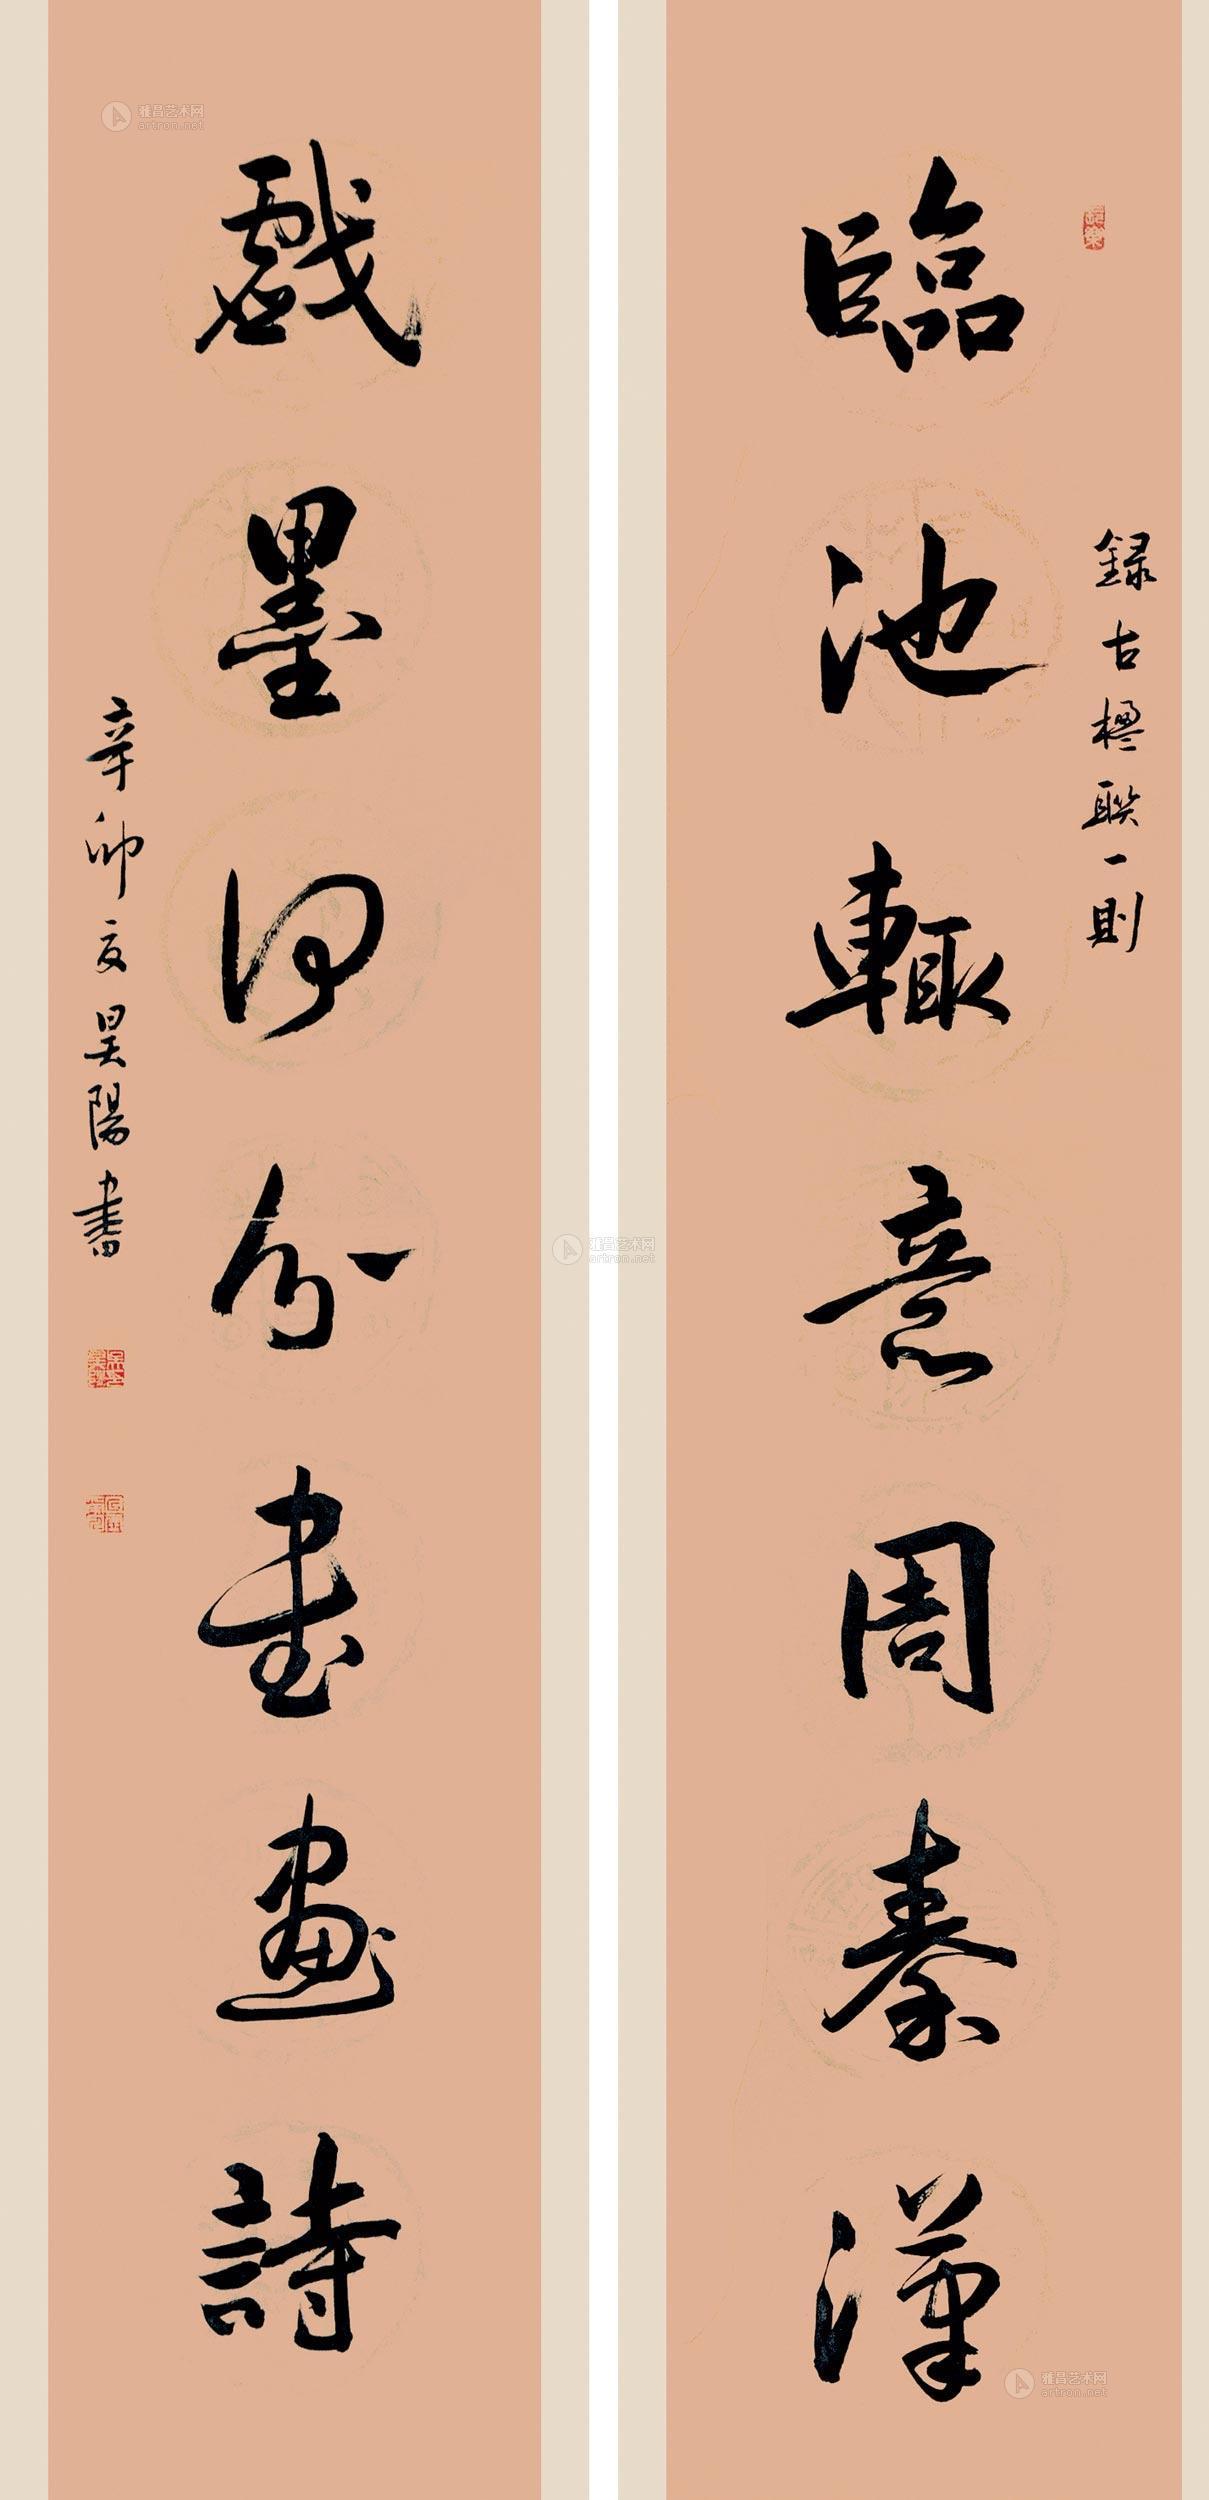 錄古楹聯一則
臨池輙意周秦漢
戲墨何分書畫詩
辛卯夏昊陽書
雅昌艺术网
artron.net
雅昌艺术网
artron.net
雅昌艺术网
artron.net